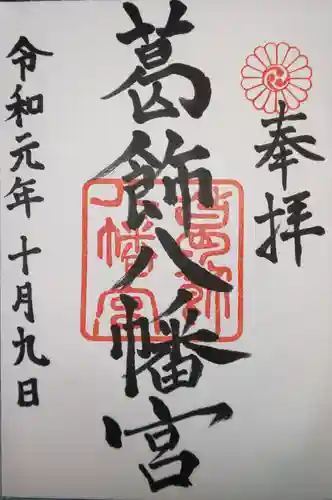 奉拝
葛飾八幡宮
令和元年十月九日
葛飾
八幡宮